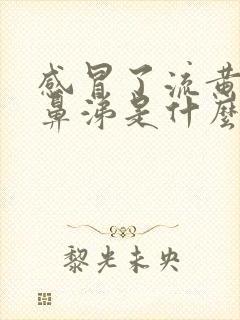 感冒了流黄
鼻涕是什麽
黎光未央